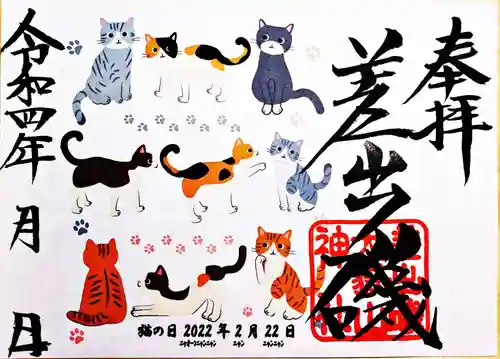 奉拝
差出磯
令和四年 月 日
猫の日 2022 年 2 月 22 日
ニャオーンニャンニャン ニャン ニャンニャン